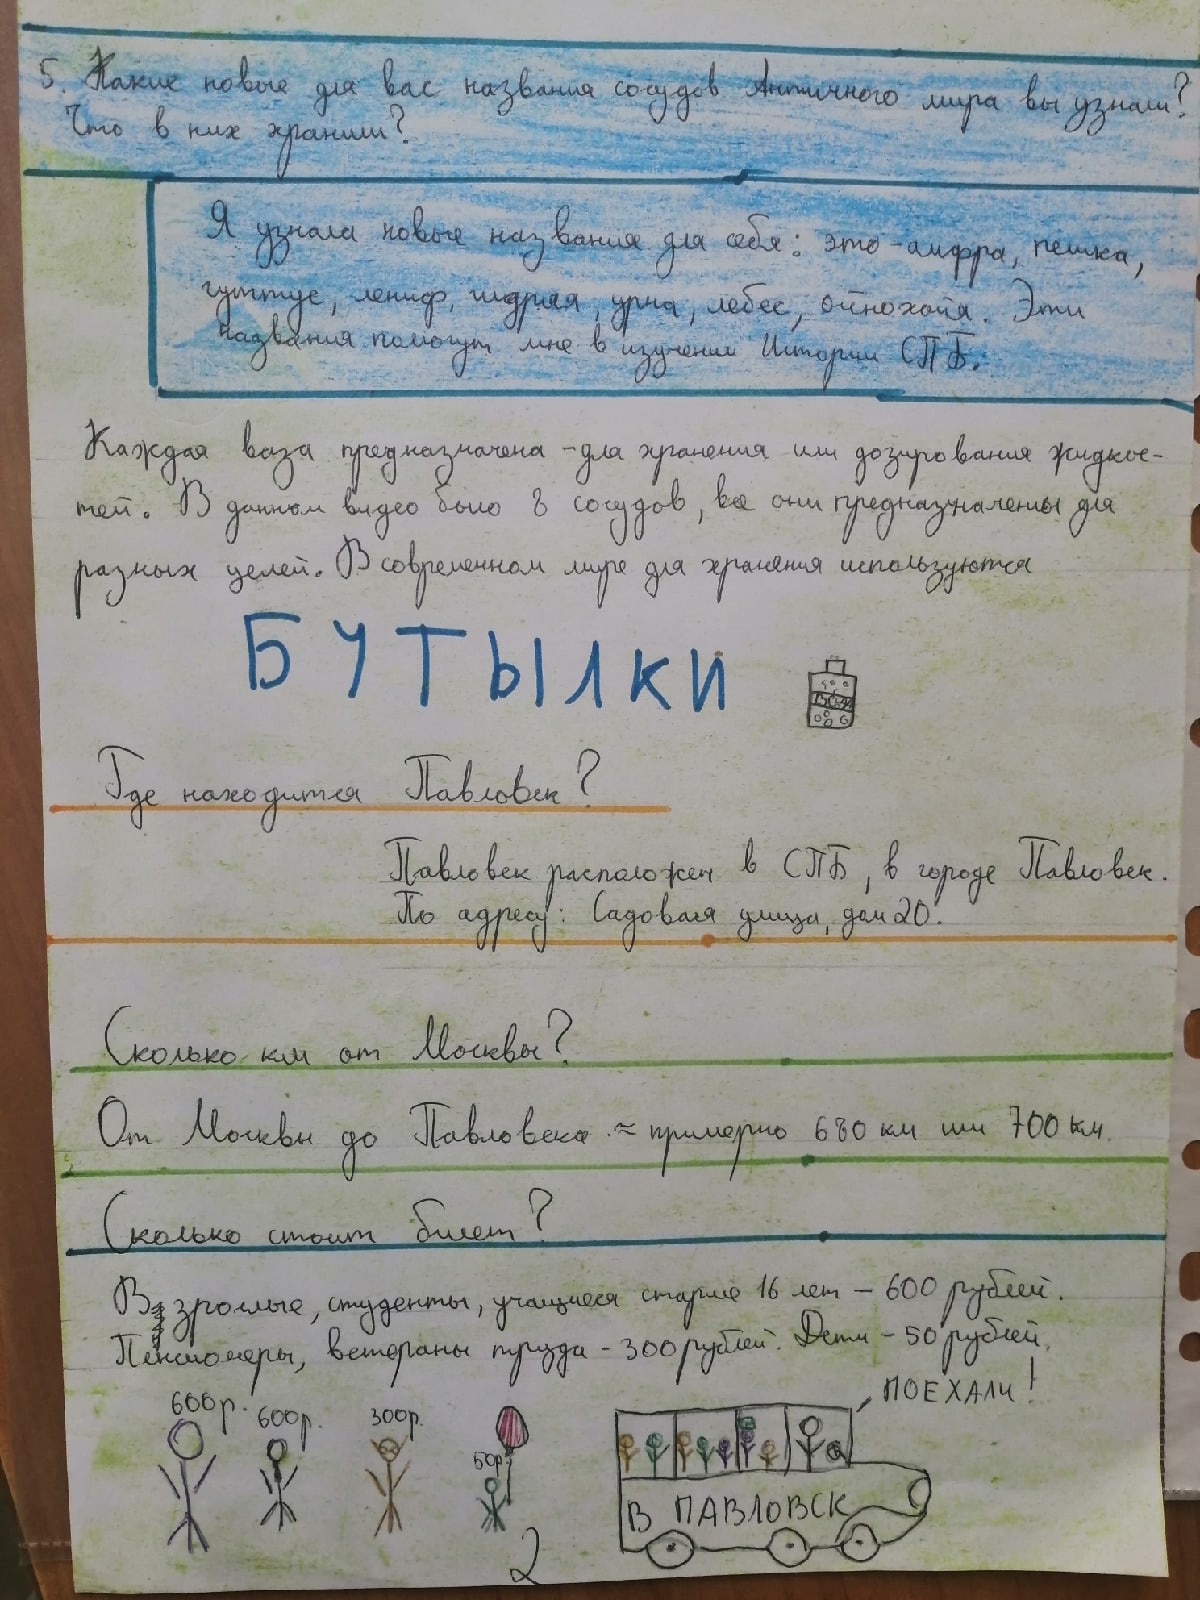 5. Какие новые для вас названия сосудов Античного мира вы узнали?
Что в них хранили?
Я узнала новые названия для себя: это - амфра, пешка,
гуттус, лекиф, гидрия, урна, лебес, ойнохойя. Эти
названия помогут мне в изучении Истории СПБ.
Каждая ваза предназначена - для хранения или дозирования жидкос-
тей. В данном видео было 8 сосудов, все они предназначены для
разных целей. В современном мире для хранения используются
БУТЫЛКИ
Где находится Павловск?
Павловск расположен в СПБ, в городе Павловск.
По адресу: Садовая улица, дом 20.
Сколько км от Москвы?
От Москвы до Павловска ≈ примерно 680 км или 700 км.
Сколько стоит билет?
Взрослые, студенты, учащиеся старше 16 лет - 600 рублей.
Пенсионеры, ветераны труда - 300 рублей. Дети - 50 рублей.
600р. 600р. 300р. 50р.
ПОЕХАЛИ!
В ПАВЛОВСК
2